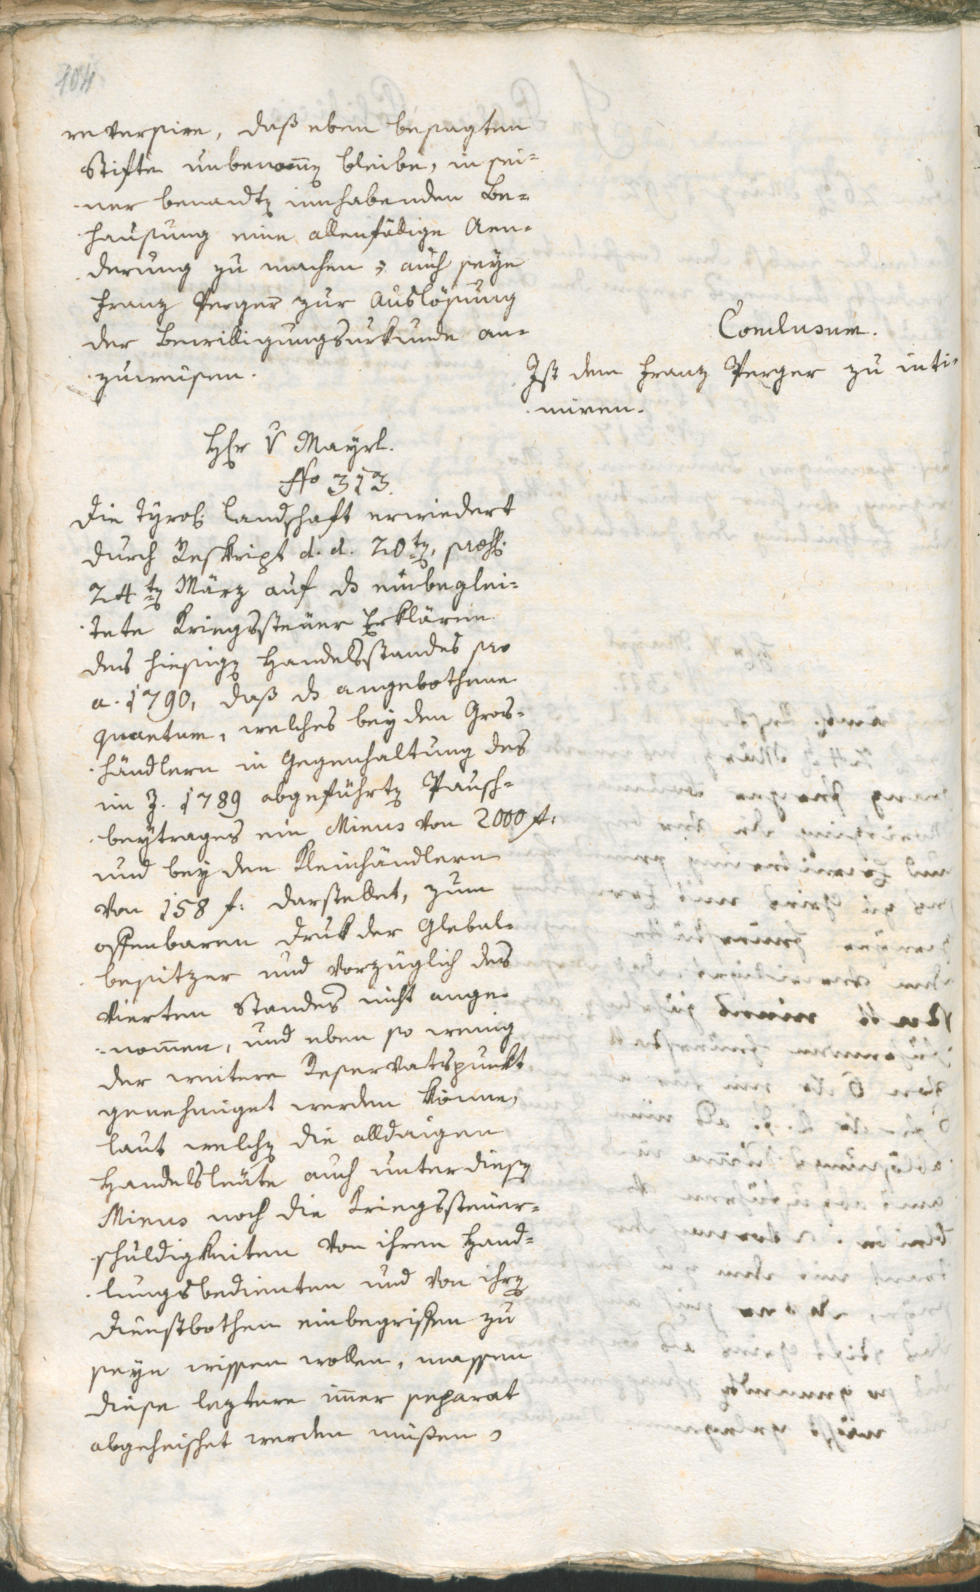 104
reversire, daß eben besagten
Stifte unbenom̄en bleibe, in sei-
ner benandten innhabenden Be-
hausung eine allenfällige Aen-
derung zu machen; auch seye
Franz Perger zur Auslösung
der Bewilligungsurkunde an-
zuweisen.
Conclusum.
Ist dem Franz Perger zu inti-
miren.
Hr v Mayrl.
No 313.
Die Tyrol. Landschaft erwiedert
durch Reskript d. d. 20ten, præs.
24ten März auf die einbeglei-
tete Kriegssteuer Erklären
des hiesigen Handelsstandes pro
a. 1790, daß das angebothene
Quantum, welches bey den Gros-
händlern in Gegenhaltung des
im J. 1789 abgeführten Pausch-
beytrages ein Minus von 2000 f.
und bey den Kleinhändlern
von 158 f. darstellet, zum
offenbaren Druk der Glebal-
besitzer und vorzüglich des
vierten Standes nicht ange-
nom̄en, und eben so wenig
der weitere Reservatspunkt
genehmiget werden könne,
laut welchen die alldaigen
Handelsleute auch unter diesen
Minus noch die Kriegssteuer-
schuldigkeiten von ihren Hand-
lungsbedienten und von ihren
Dienstbothen einbegriffen zu
seyn wissen wollen, massen
diese leztere im̄er separat
abgeheischet werden müßen,